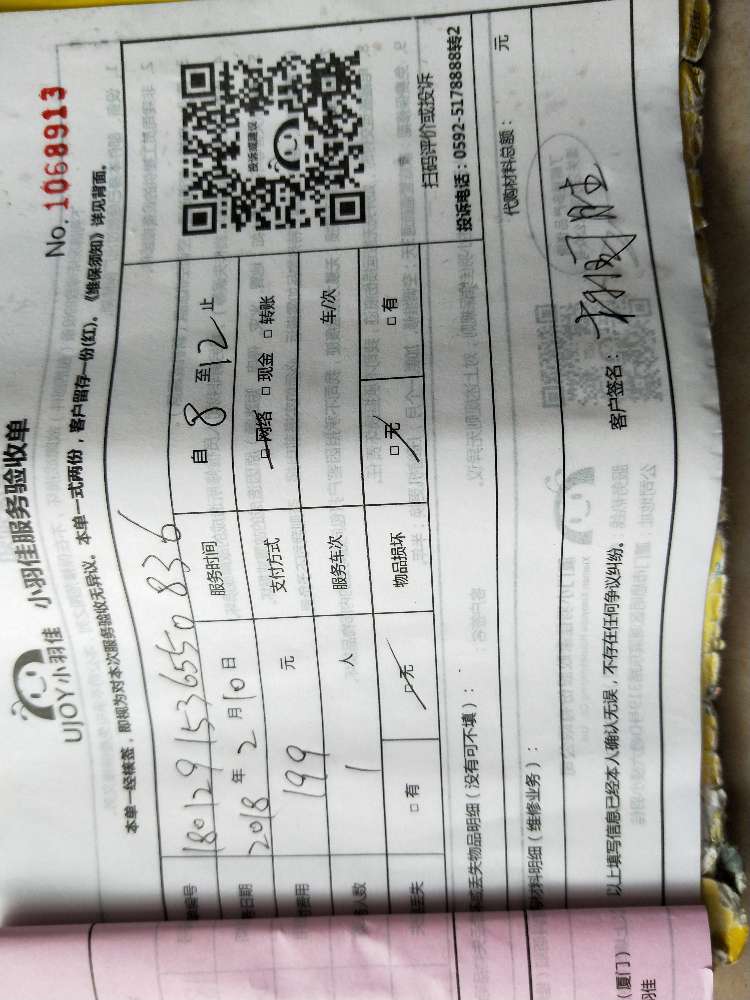 UJOY小羽佳 小羽佳服务验收单
No. 1068913
本单一经核签，即视为对本次服务验收无异议。本单一式两份，客户留存一份(红)。《维保须知》详见背面。
单编号 180129153655083 6
日期 2018 年 2 月 10 日 服务时间 自 8 至 12 止
费用 199 元 支付方式 □网络 □现金 □转账
人数 1 人 服务车次 车/次
丢失 □有 □无 物品损坏 □无 □有
投诉或建议
扫码评价或投诉
投诉电话：0592-5178888转2
丢失物品明细（没有可不填）：
材料明细（维修业务）： 代购材料总额： 元
以上填写信息已经本人确认无误，不存在任何争议纠纷。 客户签名：
（厦门）
羽佳